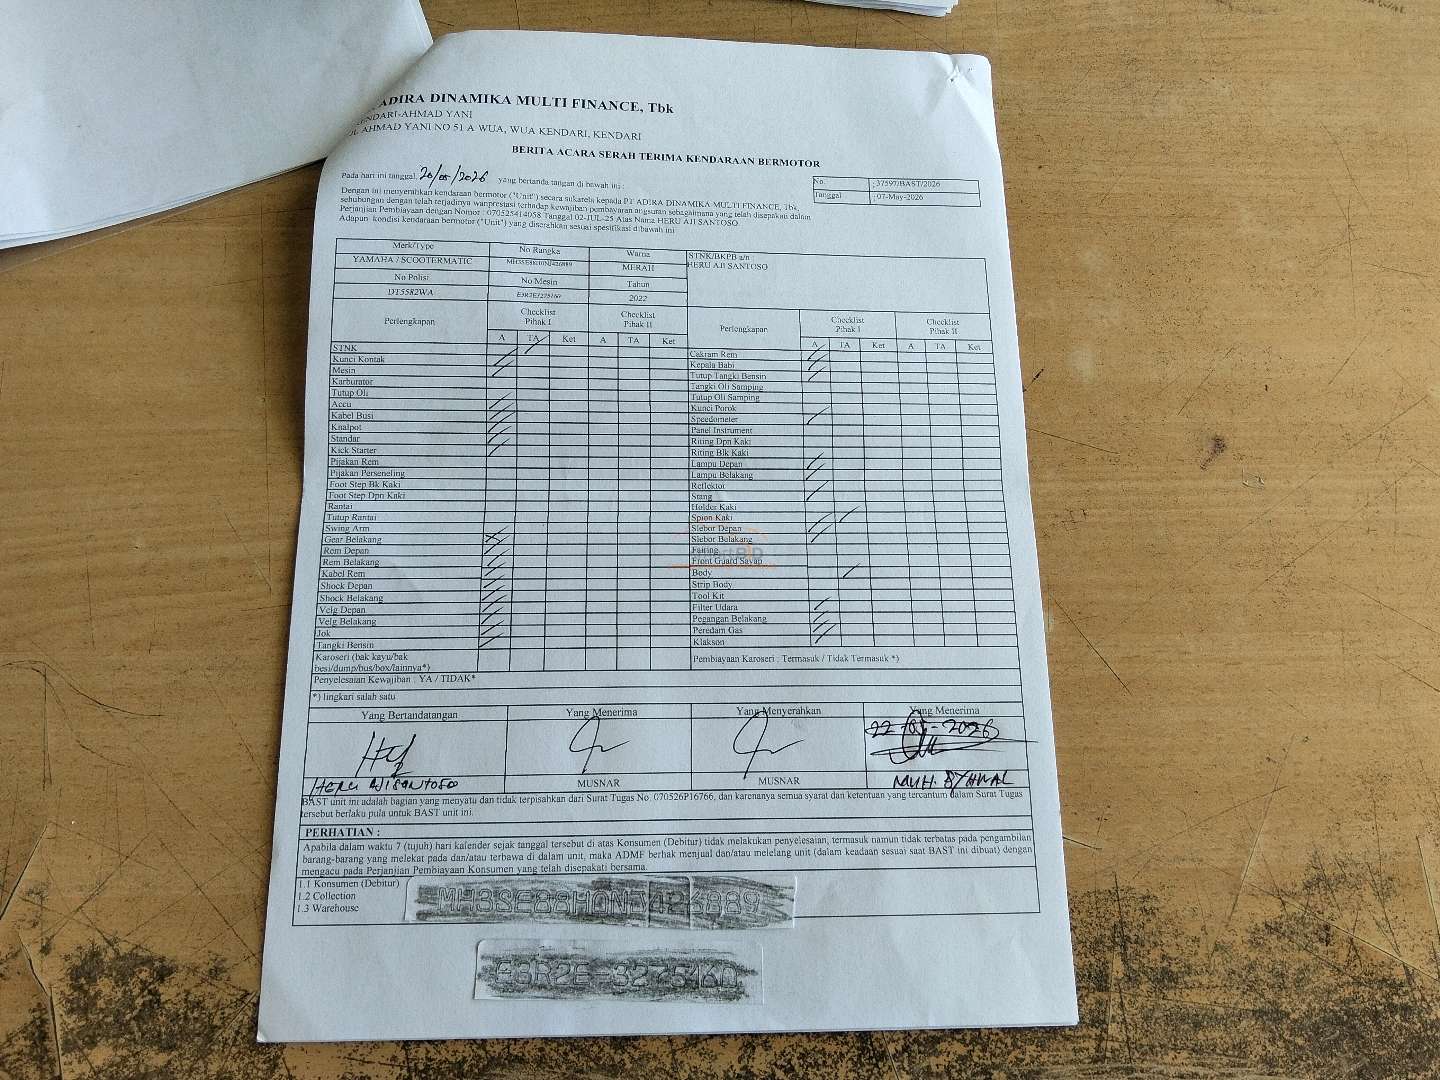 ADIRA DINAMIKA MULTI FINANCE, Tbk
KENDARI-AHMAD YANI
JL AHMAD YANI NO 51 A WUA, WUA KENDARI, KENDARI
BERITA ACARA SERAH TERIMA KENDARAAN BERMOTOR
Pada hari ini tanggal, 20/05/2026 yang bertanda tangan di bawah ini :
No. : 37597/BAST/2026
Tanggal : 07-May-2026
Dengan ini menyerahkan kendaraan bermotor ("Unit") secara sukarela kepada PT ADIRA DINAMIKA MULTI FINANCE, Tbk
sehubungan dengan telah terjadinya wanprestasi terhadap kewajiban pembayaran angsuran sebagaimana yang telah disepakati dalam
Perjanjian Pembiayaan dengan Nomor : 070525414058 Tanggal 02-JUL-25 Atas Nama HERU AJI SANTOSO.
Adapun kondisi kendaraan bermotor ("Unit") yang diserahkan sesuai spesifikasi dibawah ini
Merk/Type No Rangka Warna STNK/BKPB a/n
YAMAHA / SCOOTERMATIC MERAH HERU AJI SANTOSO
No Polisi No Mesin Tahun
DT5582WA 2022
Perlengkapan Checklist Pihak I Checklist Pihak II Perlengkapan Checklist Pihak I Checklist Pihak II
A TA Ket A TA Ket A TA Ket A TA Ket
STNK Cakram Rem
Kunci Kontak Kepala Babi
Mesin Tutup Tangki Bensin
Karburator Tangki Oli Samping
Tutup Oli Tutup Oli Samping
Accu Kunci Porok
Kabel Busi Speedometer
Knalpot Panel Instrument
Standar Riting Dpn Kaki
Kick Starter Riting Blk Kaki
Pijakan Rem Lampu Depan
Pijakan Perseneling Lampu Belakang
Foot Step Bk Kaki Reflektor
Foot Step Dpn Kaki Stang
Rantai Holder Kaki
Tutup Rantai Spion Kaki
Swing Arm Slebor Depan
Gear Belakang Slebor Belakang
Rem Depan Fairing
Rem Belakang Front Guard Sayap
Kabel Rem Body
Shock Depan Strip Body
Shock Belakang Tool Kit
Velg Depan Filter Udara
Velg Belakang Pegangan Belakang
Jok Peredam Gas
Tangki Bensin Klakson
Karoseri (bak kayu/bak Pembiayaan Karoseri : Termasuk / Tidak Termasuk *)
besi/dump/bus/box/lainnya*)
Penyelesaian Kewajiban : YA / TIDAK*
*) lingkari salah satu
Yang Bertandatangan Yang Menerima Yang Menyerahkan Yang Menerima
22-05-2026
HERU AJI SANTOSO MUSNAR MUSNAR MUH.
BAST unit ini adalah bagian yang menyatu dan tidak terpisahkan dari Surat Tugas No. 070526P16766, dan karenanya semua syarat dan ketentuan yang tercantum dalam Surat Tugas
tersebut berlaku pula untuk BAST unit ini.
PERHATIAN :
Apabila dalam waktu 7 (tujuh) hari kalender sejak tanggal tersebut di atas Konsumen (Debitur) tidak melakukan penyelesaian, termasuk namun tidak terbatas pada pengambilan
barang-barang yang melekat pada dan/atau terbawa di dalam unit, maka ADMF berhak menjual dan/atau melelang unit (dalam keadaan sesuai saat BAST ini dibuat) dengan
mengacu pada Perjanjian Pembiayaan Konsumen yang telah disepakati bersama.
1.1 Konsumen (Debitur)
1.2 Collection
1.3 Warehouse